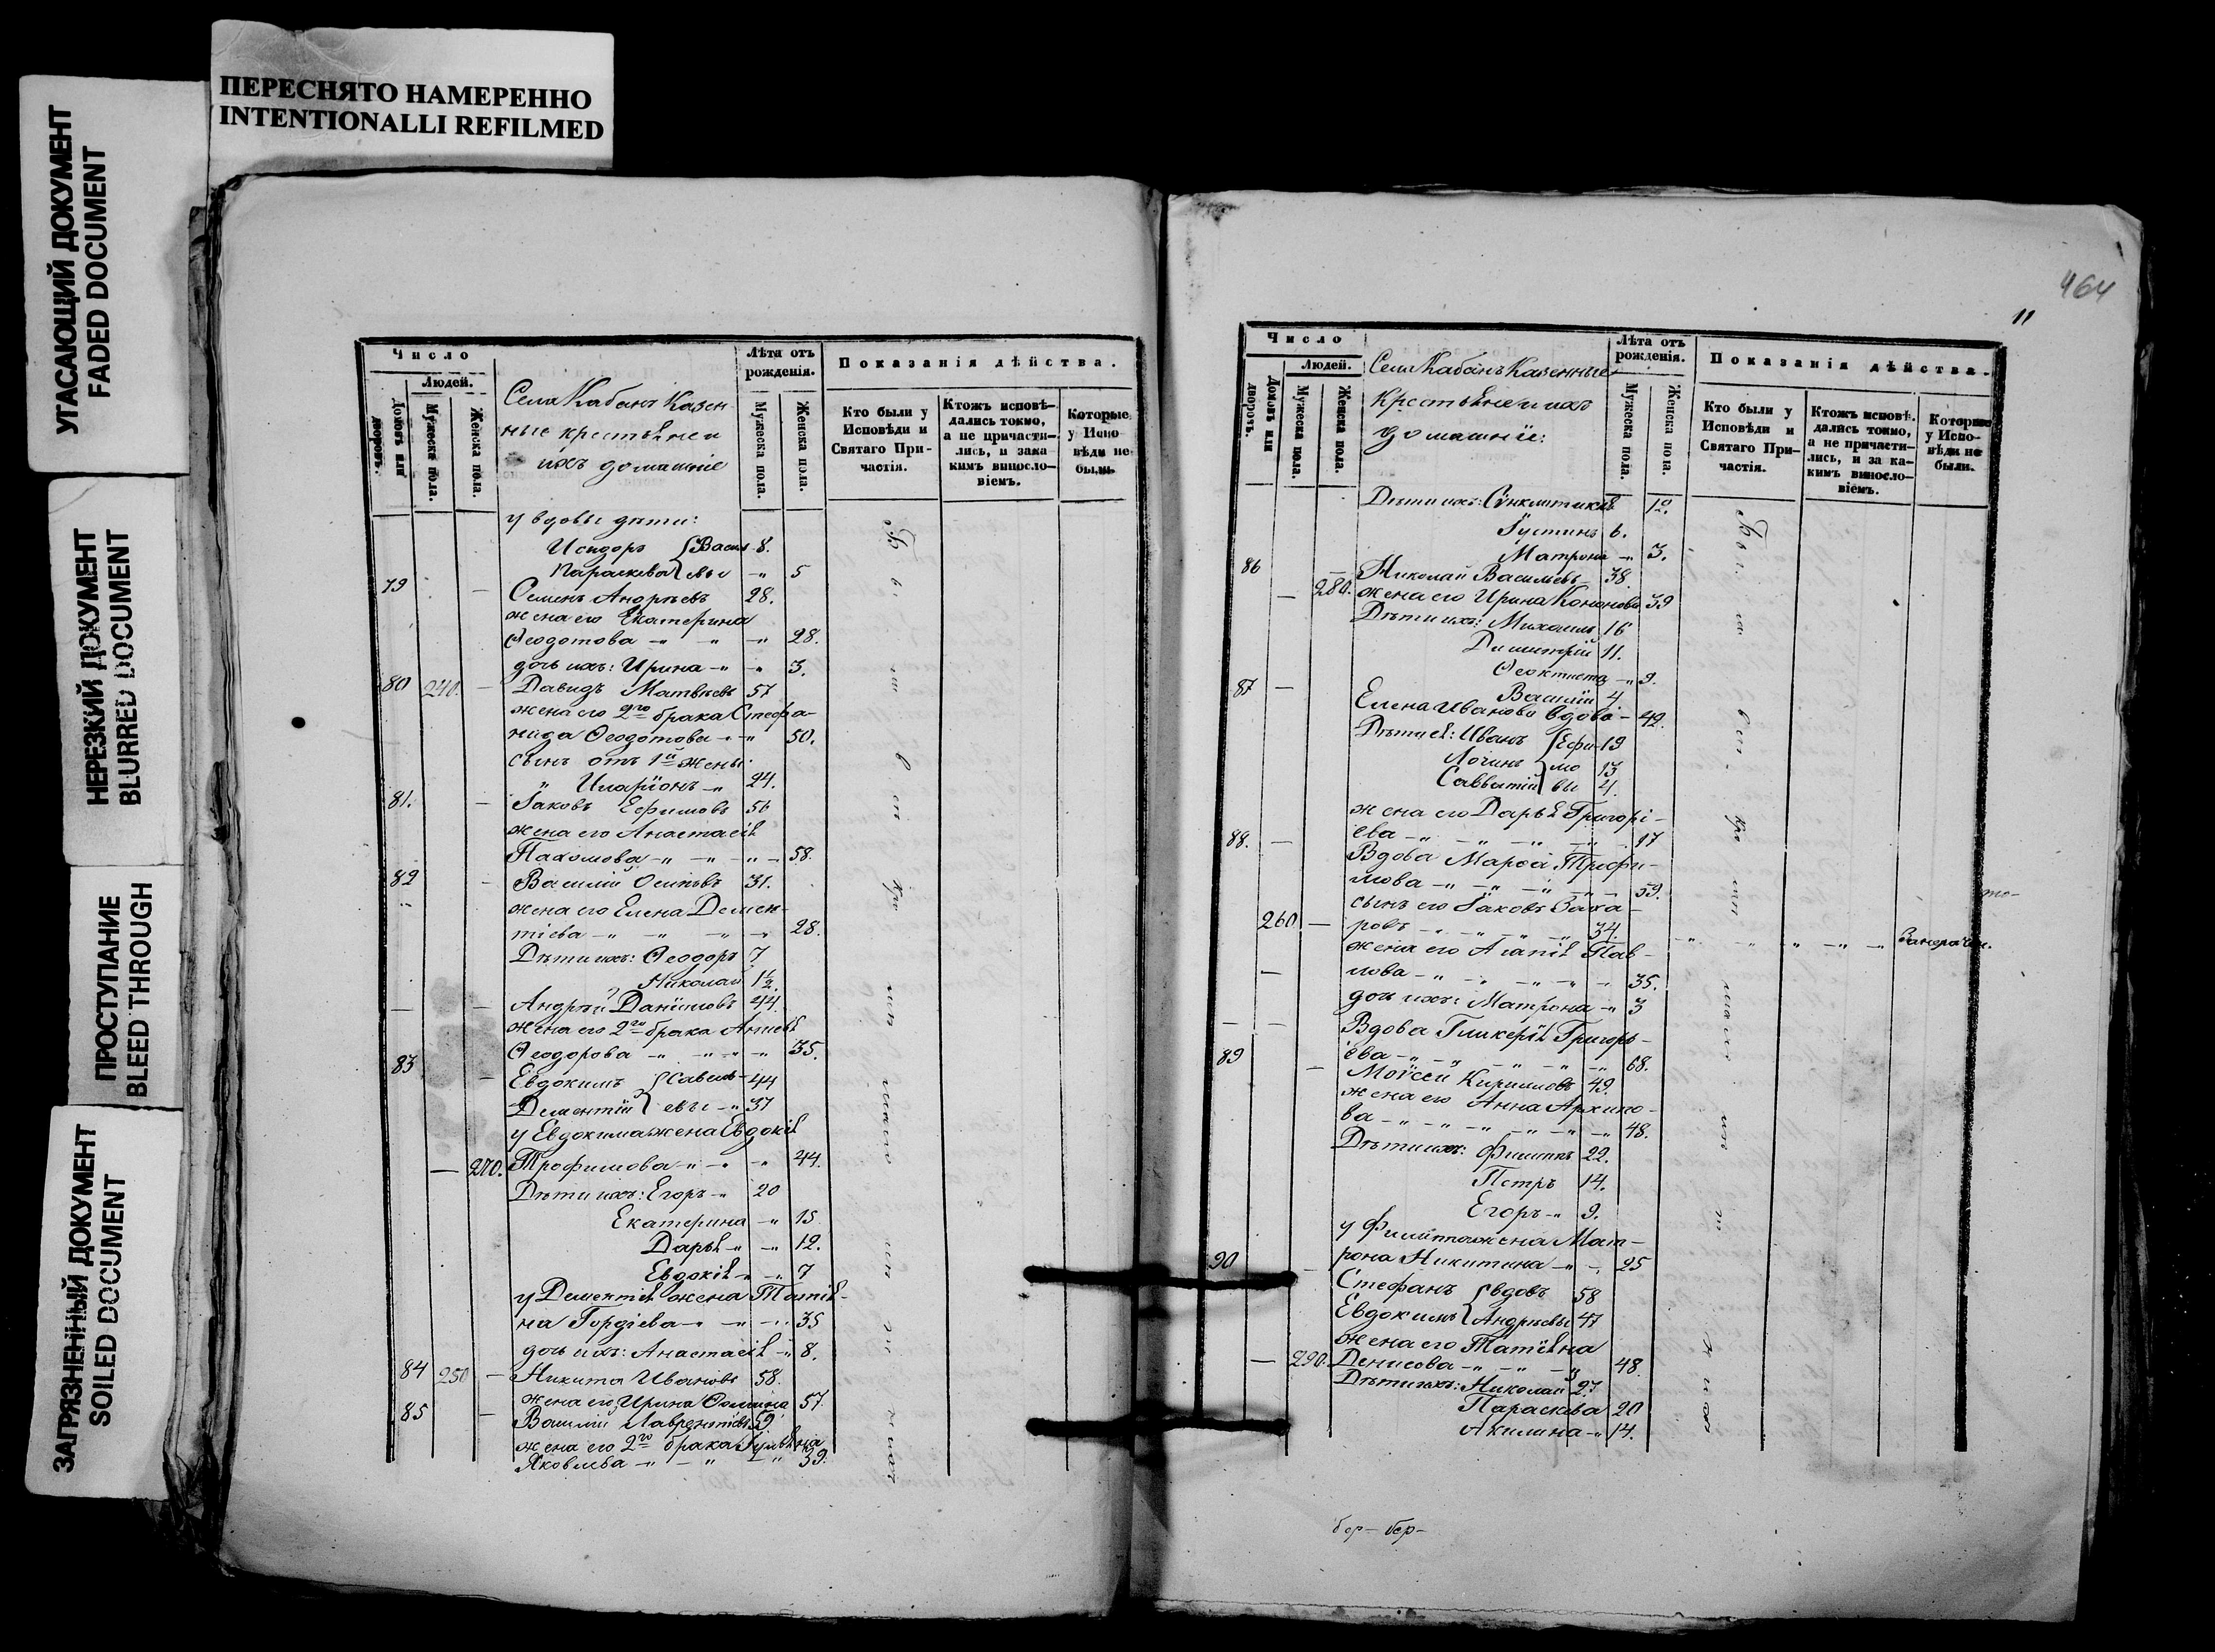 ПЕРЕСНЯТО НАМЕРЕННО
INTENTIONALLI REFILMED
УГАСАЮЩИЙ ДОКУМЕНТ
FADED DOCUMENT
НЕРЕЗКИЙ ДОКУМЕНТ
BLURRED DOCUMENT
ПРОСТУПАНИЕ
BLEED THROUGH
ЗАГРЯЗНЕННЫЙ ДОКУМЕНТ
SOILED DOCUMENT
Число
Людей.
Домовъ или дворовъ.
Мужеска пола.
Женска пола.
Села Кабанъ Казен-
ные крестьяне и
ихъ домашніе
Лѣта отъ рожденія.
Мужеска пола.
Женска пола.
Показанія дѣйства.
Кто были у Исповѣди и Святаго Причастія.
Ктожъ исповѣ-
дались токмо,
а не причасти-
лись, и зака
кимъ виносло-
віемъ.
Которые
у Испо-
вѣди не
были.
у вдовы дѣти:
Исидоръ Васил- 8.
Параскева евы 5
79 Семенъ Андрѣевъ 28.
жена его Екатерина
Ѳеодотова 28.
дочь ихъ: Ирина 3.
80 240. Давидъ Матвѣевъ 57
жена его 2го брака Стефа-
нида Ѳеодотова 50.
сынъ отъ 1й жены
Иларіонъ 24.
81. Іаковъ Ефимовъ 56
жена его Анастасія
Пахомова 58.
82 Василій Осиповъ 31.
жена его Елена Демен-
тіева 28.
Дѣти ихъ: Ѳеодоръ 7.
Николай 1½.
Андрей Даніиловъ 44.
жена его 2го брака Анисія
Ѳеодорова 35.
83 Евдокимъ Савель- 44
Дементій евы 37
у Евдокима жена Евдокія
270. Трофимова 44.
Дѣти ихъ: Егоръ 20
Екатерина 15
Дарья 12.
Евдокія 7
у Дементія жена Татія-
на Гордіева 35
дочь ихъ: Анастасія 8.
84 250 Никита Ивановъ 58.
жена его Ирина Ѳомина 57
85 Василій Лаврентіевъ 59
жена его 2го брака Іуліяна
Яковлева 39.
464
11
Число
Людей.
Домовъ или дворовъ.
Мужеска пола.
Женска пола.
Села Кабанъ Казенные
крестьяне и ихъ
домашніе:
Лѣта отъ рожденія.
Мужеска пола.
Женска пола.
Показанія дѣйства.
Кто были у Исповѣди и Святаго Причастія.
Ктожъ исповѣ-
дались токмо,
а не причасти-
лись, и за ка-
кимъ виносло-
віемъ.
Которые
у Испо-
вѣди не
были.
Дѣти ихъ: Сунклитикія 12.
Іустинъ 6.
Матрона 3.
86 Николай Васильевъ 38.
280. жена его Ирина Кононова 39
Дѣти ихъ: Михаилъ 16
Димитрій 11.
Ѳеоктиста 9.
Василій 4.
87 Елена Иванова вдова 42.
Дѣти ея: Иванъ Ефи- 19
Логинъ мо 13
Савватій вы 4.
жена его Дарья Григорі-
ева 17
88. Вдова Марѳа Трофи-
мова 59.
сынъ ея Іаковъ Заха-
260 ровъ 34.
жена его Агапія Пав-
лова 35.
дочь ихъ: Матрона 3
Вдова Гликерія Григорь-
ева 68.
89 Моѵсей Кирилловъ 49.
жена его Анна Архипо-
ва 48.
Дѣти ихъ: Филиппъ 22.
Петръ 14.
Егоръ 9.
у Филиппа жена Мат-
рона Никитина 25
90 Стефанъ вдовъ 58
Евдокимъ Андрѣевы 47
жена его Татіяна
290. Денисова 48.
Дѣти ихъ: Николай 23
Параскева 20
Акилина 14.
бер- бер-